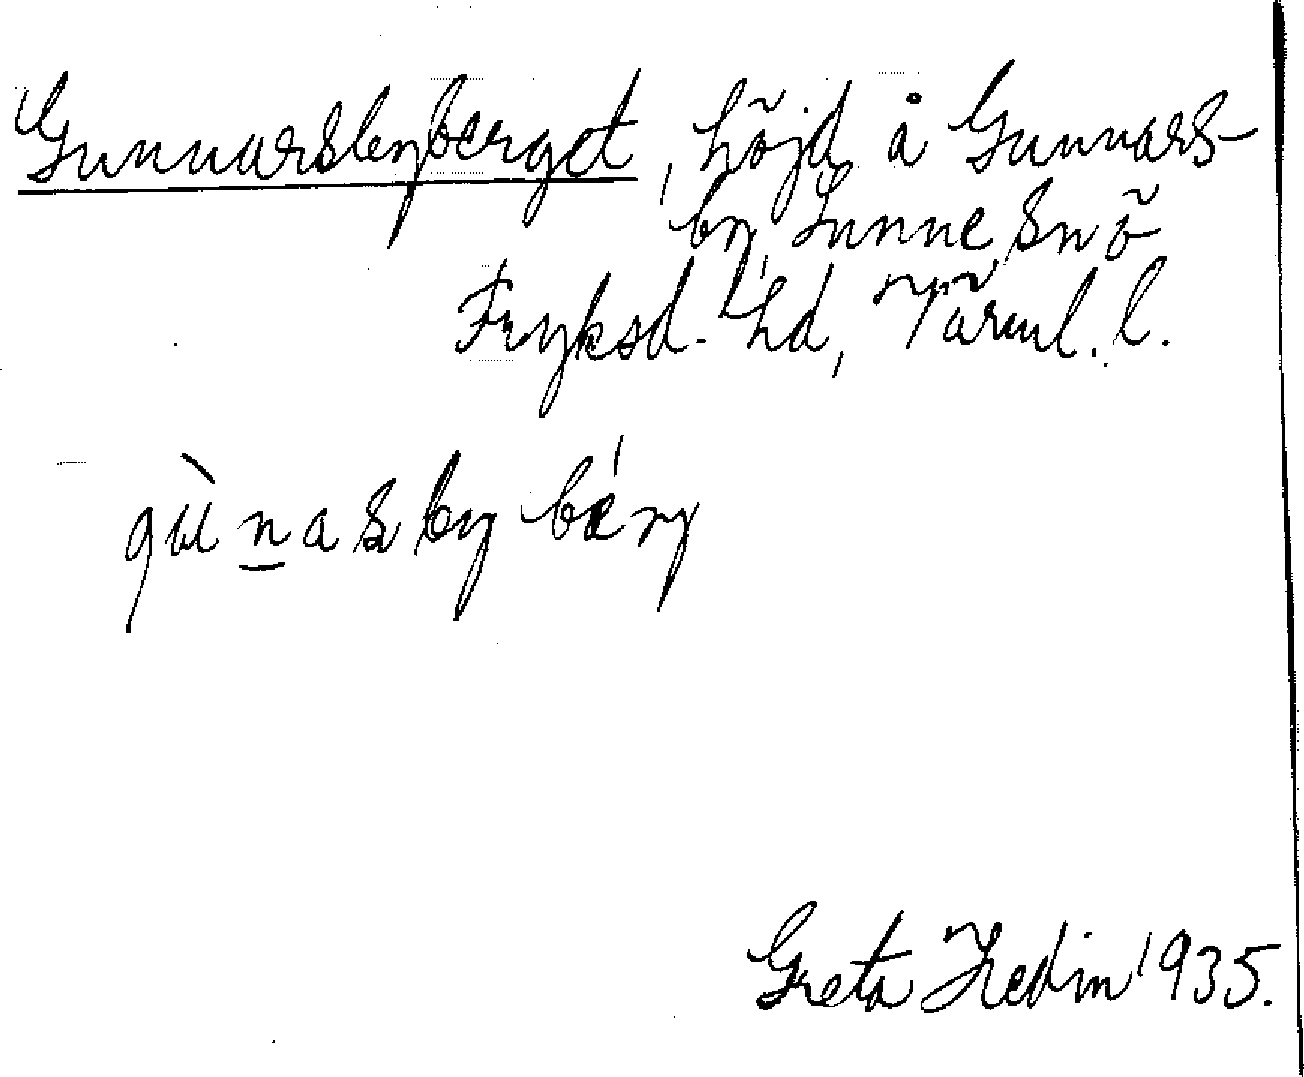 Gunnarsbyberget, höjd å Gunnars-
by, Sunne, Snö
Fryksd. hd, Värml. l.
gùnasbybǽry
Greta Hedin 1935.